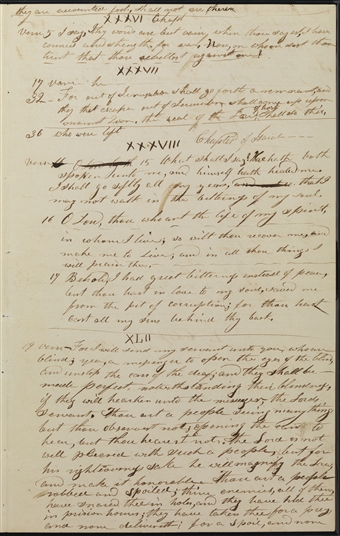 they are accounted fools, shall not err therein
XXXVI Chapt
Vers 5 I say, thy words are but vain, when thou sayest I have
counsel and strength, for war, Now, on whom dost thou
trust that thou rebellest against me
XXXVII
17 vers he
32 — For out of Jerusalem shall go forth a remnant, and
they that escape out of Jerusalem shall come up upon
mount Zion, the zeal of the Lord of hosts shall do this,
36 who were left
XXXVIII Chapter of Isaiah
vers 15 What shall I say, He hath both
spoken unto me, and himself hath healed me
I shall go softly all my years, that I
may not walk in the bitterness of my soul.
16 O Lord, thou who art the life of my spirit,
in whom I live; so wilt thou recover me, and
make me to live; and in all these things I
will praise thee.
17 Behold, I had great bitterness instead of peace,
but thou hast in love to my soul, saved me
from the pit of corruption; for thou hast
cast all my sins behind thy back.
XLII
19 vers For I will send my servant unto you who are
blind; yea, a messenger to open the eyes of the blind,
and unstop the ears of the deaf; and they shall be
made perfect notwithstanding their blindness,
if they will hearken unto the messenger, the Lord's
servant. Thou art a people seeing many things
but thou observest not; opening the ears to
hear, but thou hearest not; the Lord is not
well pleased with such a people, but for
his righteousness sake he will magnify the law,
and make it honorable. Thou art a people
robbed and spoiled; thine enemies, all of them
have snared thee in holes, and they have hid thee
in prison houses; they have taken thee for a prey
and none delivereth; for a spoil, and none